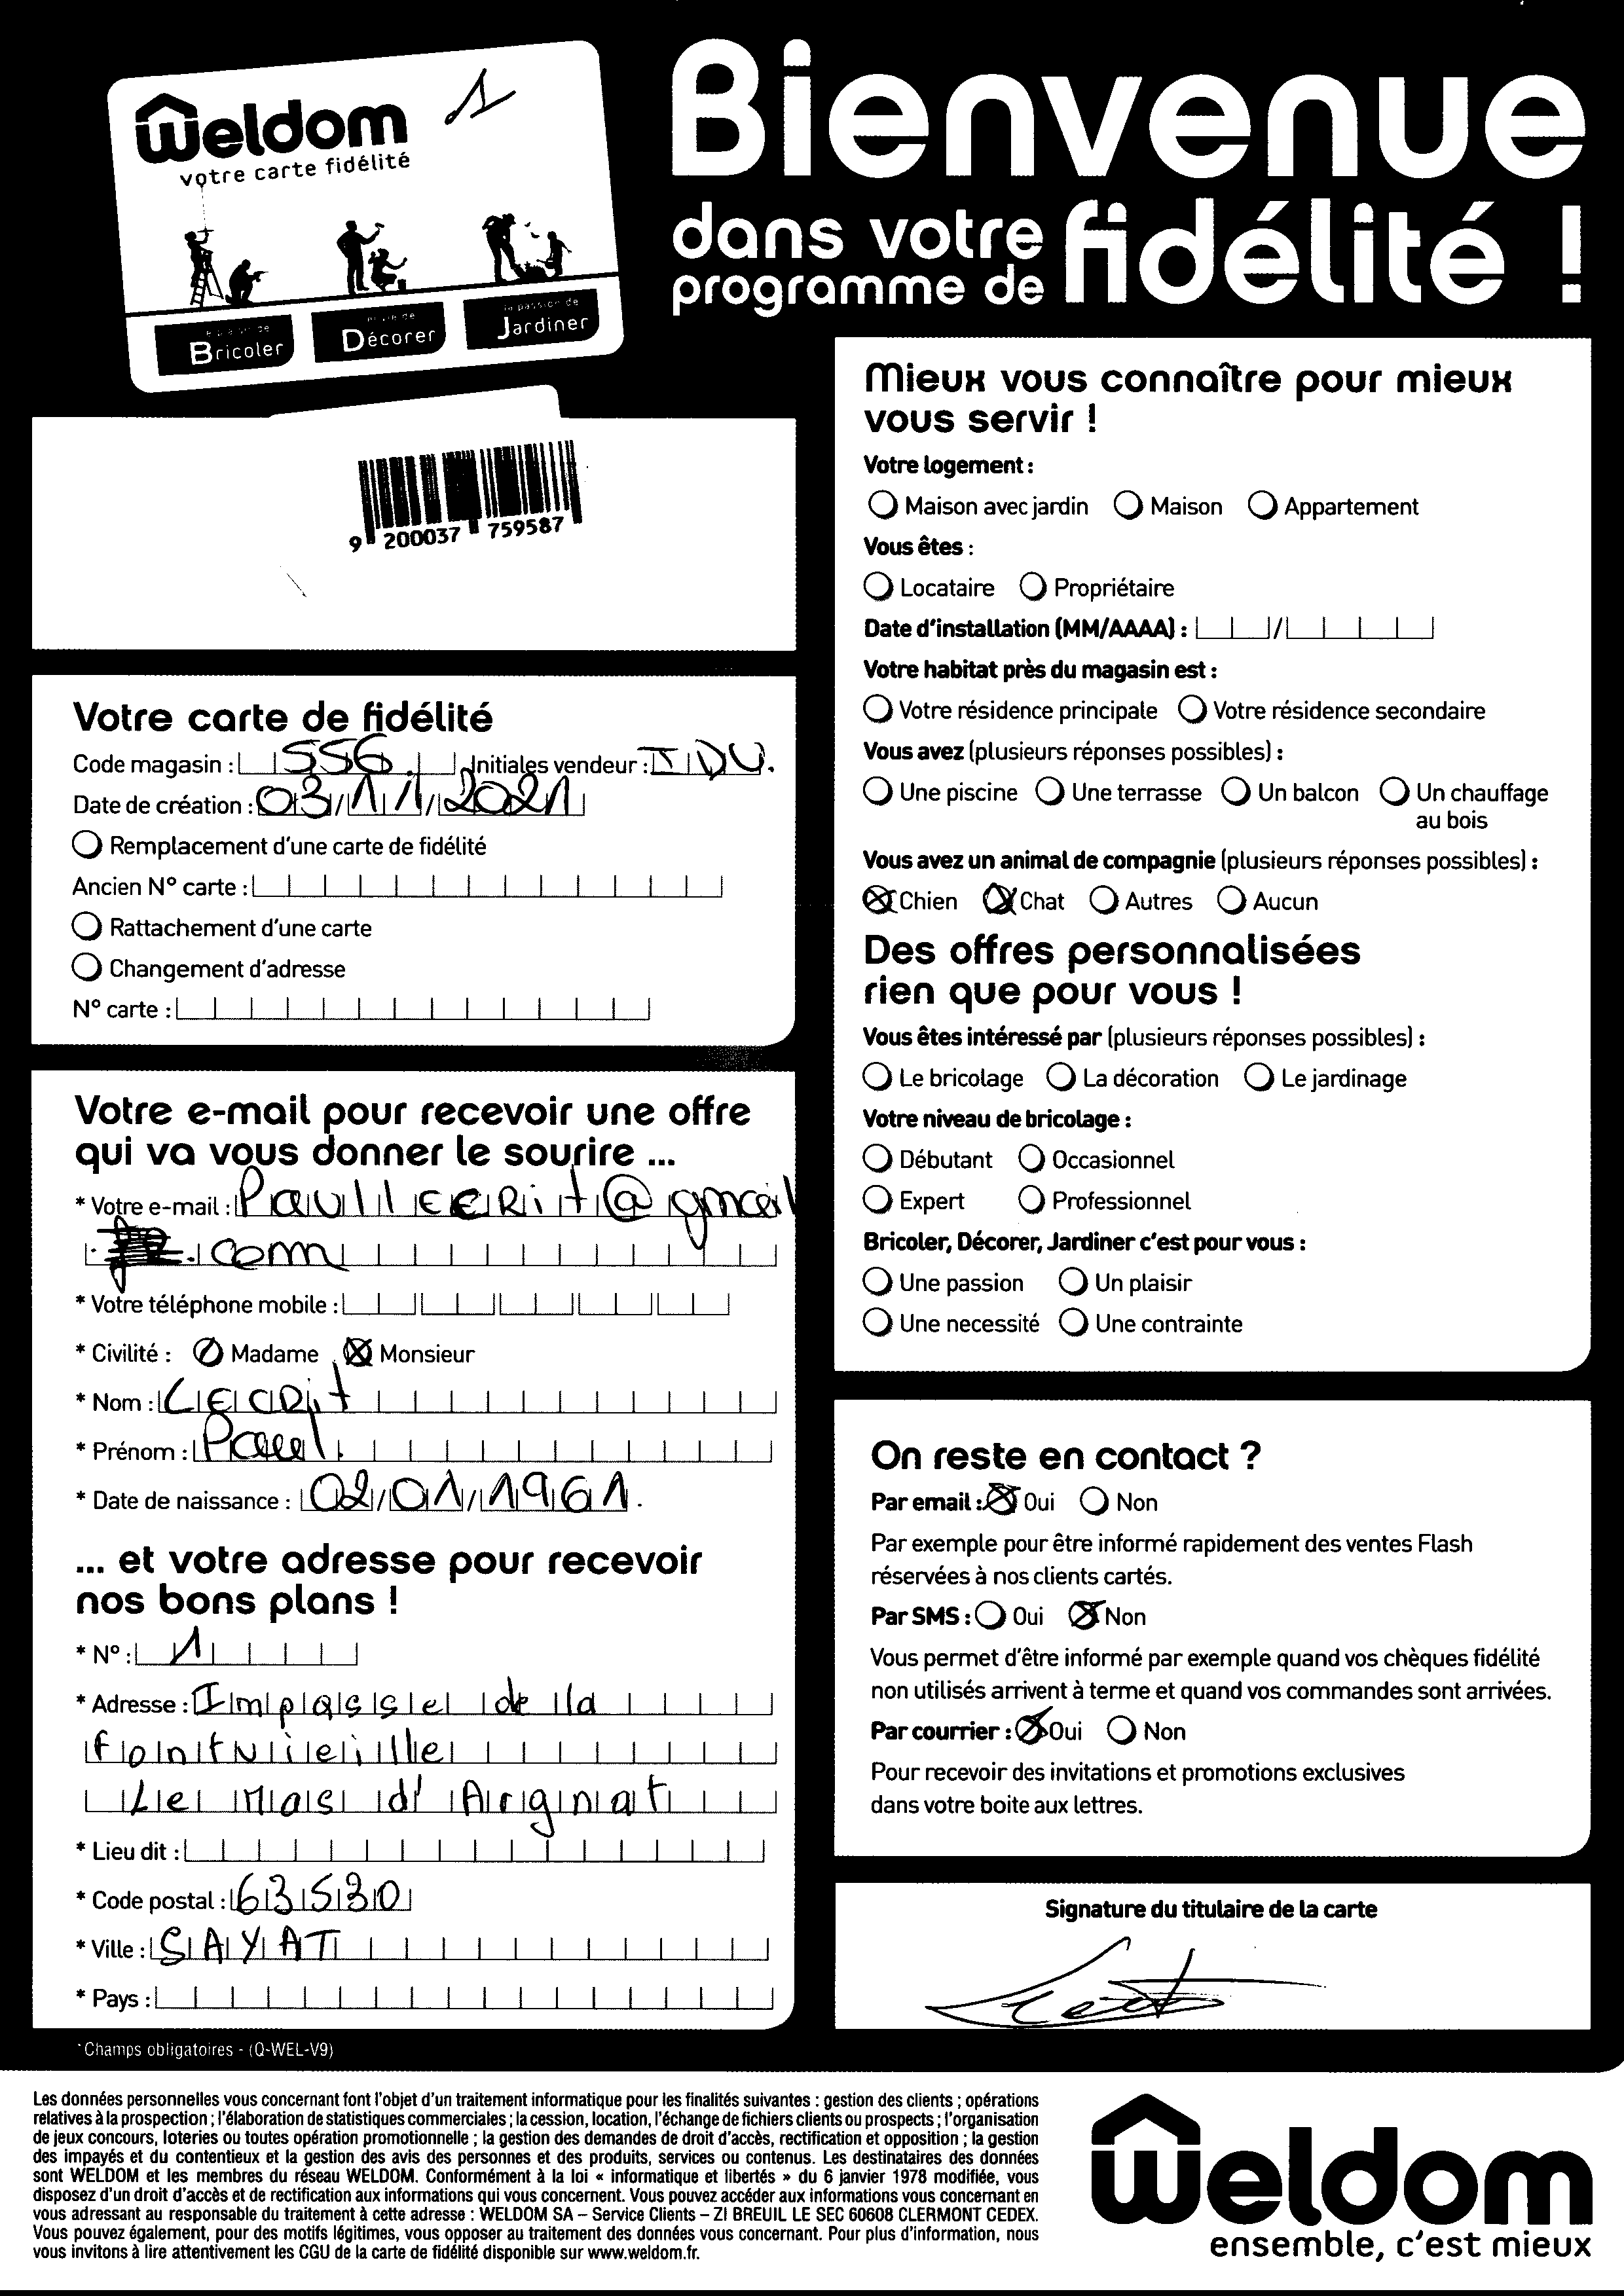 weldom
votre carte fidélité
Bricoler
Décorer
la passion de
Jardiner
Bienvenue
dans votre
programme de fidélité !
9 200037 759587
Votre carte de fidélité
Code magasin : 556 Initiales vendeur :
Date de création : 03/11/2021
Remplacement d'une carte de fidélité
Ancien N° carte :
Rattachement d'une carte
Changement d'adresse
N° carte :
Votre e-mail pour recevoir une offre
qui va vous donner le sourire ...
* Votre e-mail : Paullecrit@gmail
. com
* Votre téléphone mobile :
* Civilité : Madame Monsieur
* Nom : LECRit
* Prénom : Paul
* Date de naissance : 02/01/1961.
... et votre adresse pour recevoir
nos bons plans !
* N° : 1
* Adresse : Impasse de la
fontvieille
Le Mas d'Argnat
* Lieu dit :
* Code postal : 63530
* Ville : SAYAT
* Pays :
*Champs obligatoires - (Q-WEL-V9)
Mieux vous connaître pour mieux
vous servir !
Votre logement :
Maison avec jardin Maison Appartement
Vous êtes :
Locataire Propriétaire
Date d'installation (MM/AAAA) : /
Votre habitat près du magasin est :
Votre résidence principale Votre résidence secondaire
Vous avez (plusieurs réponses possibles) :
Une piscine Une terrasse Un balcon Un chauffage
au bois
Vous avez un animal de compagnie (plusieurs réponses possibles) :
Chien Chat Autres Aucun
Des offres personnalisées
rien que pour vous !
Vous êtes intéressé par (plusieurs réponses possibles) :
Le bricolage La décoration Le jardinage
Votre niveau de bricolage :
Débutant Occasionnel
Expert Professionnel
Bricoler, Décorer, Jardiner c'est pour vous :
Une passion Un plaisir
Une necessité Une contrainte
On reste en contact ?
Par email : Oui Non
Par exemple pour être informé rapidement des ventes Flash
réservées à nos clients cartés.
Par SMS : Oui Non
Vous permet d'être informé par exemple quand vos chèques fidélité
non utilisés arrivent à terme et quand vos commandes sont arrivées.
Par courrier : Oui Non
Pour recevoir des invitations et promotions exclusives
dans votre boite aux lettres.
Signature du titulaire de la carte
Les données personnelles vous concernant font l'objet d'un traitement informatique pour les finalités suivantes : gestion des clients ; opérations
relatives à la prospection ; l'élaboration de statistiques commerciales ; la cession, location, l'échange de fichiers clients ou prospects ; l'organisation
de jeux concours, loteries ou toutes opération promotionnelle ; la gestion des demandes de droit d'accès, rectification et opposition ; la gestion
des impayés et du contentieux et la gestion des avis des personnes et des produits, services ou contenus. Les destinataires des données
sont WELDOM et les membres du réseau WELDOM. Conformément à la loi « informatique et libertés » du 6 janvier 1978 modifiée, vous
disposez d'un droit d'accès et de rectification aux informations qui vous concernent. Vous pouvez accéder aux informations vous concernant en
vous adressant au responsable du traitement à cette adresse : WELDOM SA – Service Clients – ZI BREUIL LE SEC 60608 CLERMONT CEDEX.
Vous pouvez également, pour des motifs légitimes, vous opposer au traitement des données vous concernant. Pour plus d'information, nous
vous invitons à lire attentivement les CGU de la carte de fidélité disponible sur www.weldom.fr.
weldom
ensemble, c'est mieux